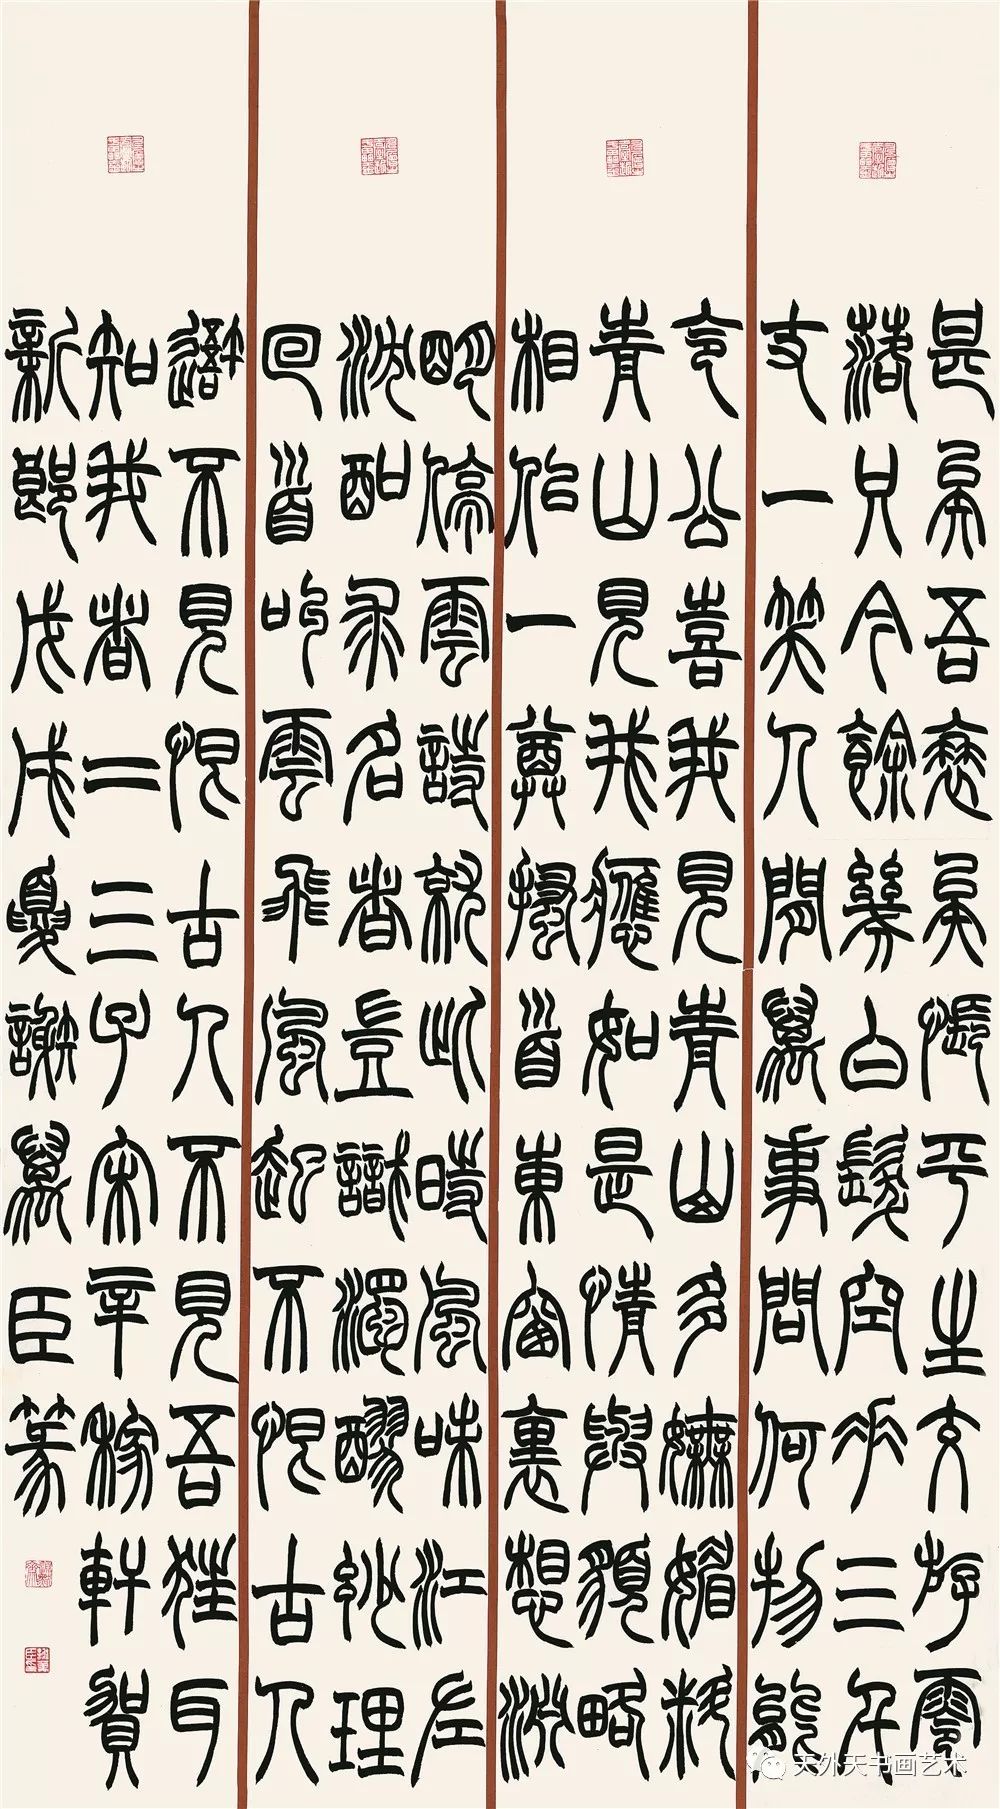 甚矣吾衰矣悵平生交游零
落只今餘幾白髮空垂三千
丈一笑人間萬事問何物能
令公喜我見青山多嫵媚料
青山見我應如是情與貌略
相似一尊搔首東窗裏想淵
明停雲詩就此時風味江左
沈酣求名者豈識濁醪妙理
回首叫雲飛風起不恨古人
吾不見恨古人不見吾狂耳
知我者二三子宋辛稼軒賀
新郎戊戌夏謝萬臣篆
天外天书画艺术